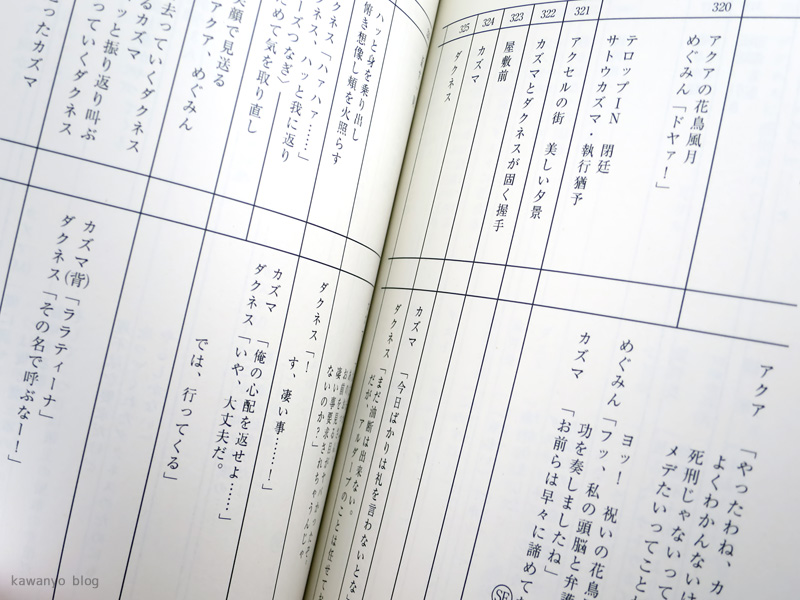 320
アクアの花鳥風月
めぐみん「ドヤァ！」
テロップＩＮ　閉廷
サトウカズマ・執行猶予
321
アクセルの街　美しい夕景
322
カズマとダクネスが固く握手
323
屋敷前
324
カズマ
325
ダクネス
アクア
「やったわね、カ
よくわかんないけ
死刑じゃないって
メデたいってこと
ヨッ！　祝いの花鳥
めぐみん「フッ、私の頭脳と弁護
功を奏しましたね」
カズマ　「お前らは早々に諦めて
SE
カズマ　「今日ばかりは礼を言わないとな
ダクネス「まだ油断は出来ない。
だが、アルダープのことは任せて
ハッと身を乗り出し
想像し頬を火照らす
クネス「ハァハァ……」
クネス、ハッと我に返り
ーズつなぎ）
めて気を取り直し
笑顔で見送る
アクア、めぐみん
去っていくダクネス
るカズマ
ッと振り返り叫ぶ
っていくダクネス
ったカズマ
ないのか？」
ダクネス「！
す、凄い事……！」
カズマ　「俺の心配を返せよ……」
ダクネス「いや、大丈夫だ。
では、行ってくる」
カズマ（背）「ララティーナ」
ダクネス「その名で呼ぶなー！」
kawanyo blog